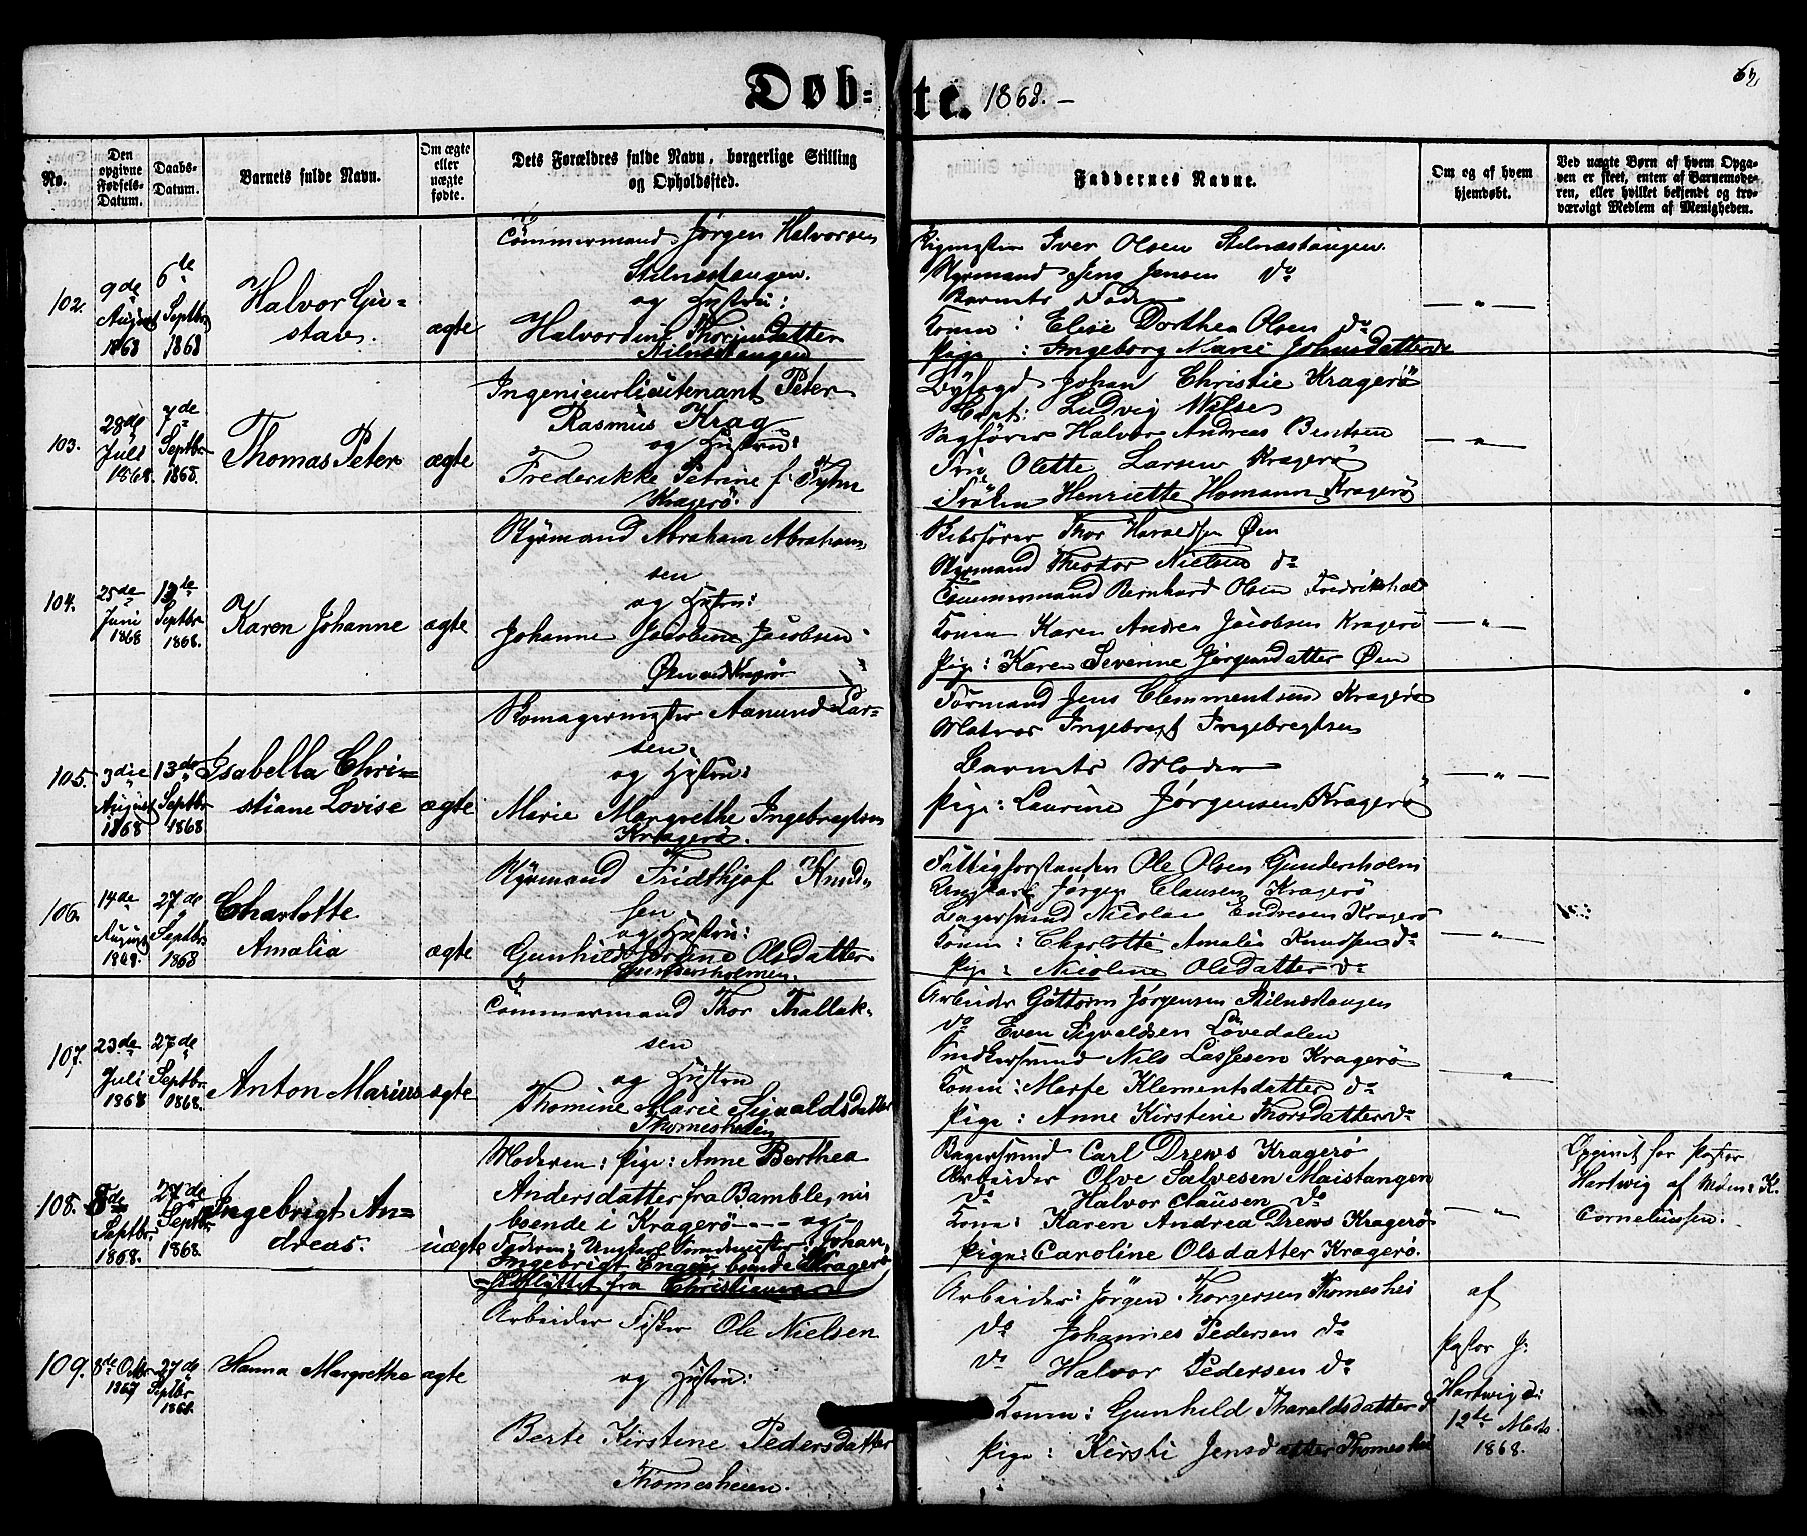 Døbte. 1868.–
62
No.
Den opgivne Fødsels-Datum.
Daabs-Datum.
Barnets fulde Navn.
Om ægte eller uægte fødte.
Dets Forældres fulde Navn, borgerlige Stilling og Opholdssted.
Faddernes Navne.
Om og af hvem hjemdøbt.
Ved uægte Børn af hvem Opgaven er skeet, enten af Barnemoderen, eller hvilket bekjendt og troværsigt Medlem af Menigheden.
102.
9de August 1868
6te Septbr 1868
Halvor Gu=
stav.
ægte
Tömmermand Jørgen Halvorsen
Stilnæstangen.
og Hustru:
Halvordine Thorjusdatter
Stilnæstangen
Iver Olsen Stilnæstangen.
Styrmand Jens Jensen do
Barnets Fader
Konen: Elise Dorthea Olsen do
Pige: Ingeborg Marie Johnsdatter do
— " —
103.
28de Juli 1868.
7de Septbr 1868.
Thomas Peter
ægte
Ingenieurlieutenant Peter
Rasmus Krag
og Hustru:
Frederikke Petrine f.
Kragerö.
Byfogd Johan Christie Kragerö
Capt: Ludvig Wilse
Sagfører Halvor Andreas Bentsen
Olette Larsen Kragerö
Fröken Henriette Homann Kragerö
— " —
104.
25de Juni 1868
13te Septbr 1868.
Karen Johanne
ægte
Styrmand Abraham Abraham-
sen
og Hustru:
Johanne Jacobine Jacobsen
Øen ved Kragerø
Skibsfører Thor Haraldsen Øen
Styrmand Theodor Nielsen do
Tömmermand Bernhard Olsen Fredrikshald
Konen Karen Andrea Jacobsen Kragerö
Pige: Karen Severine Jørgensdatter Øen
— " —
105.
3die August 1868
13de Septbr 1868
Isabella Chri=
stiane Lovise
ægte
Skomagermester Aanund Lar=
sen.
og Hustru:
Marie Margrethe Ingebregtsen
Kragerö.
Formand Jens Clemmentsen Kragerö
Matros Ingebregt Ingebregtsen
Barnets Moder
Pige: Laurine Jørgensen Kragerö
— " —
106.
14de August 1868.
27de Septbr 1868
Charlotte
Amalia
ægte
Styrmand Fridthjof Knud-
sen
og Hustru:
Gunhild Jørine Olsdatter
Gundersholmen.
Fattigforstander Ole Olsen Gundersholm
Ungkarl Jørgen Clausen Kragerö
Bagersvend Nicolai Endresen Kragerö
Konen: Charlotte Amalie Knudsen do
Pige: Nicoline Olsdatter do
— " —
107.
23de Juli 1868
27de Septbr 1868.
Anton Marius
ægte
Tömmermand Thor Thollak-
sen
og Hustru
Thomine Marie Sigvaldsdatter
Thomesheien
Arbeider Guttorm Jørgensen Stilnæstangen
do Even Sigvaldsen Lövedalen
Snedkersvend Nils Lassesen Kragerö
Konen: Merte Klementsdatter do
Pige: Anne Kirstine Thorsdatter do
— " —
108.
5de Septbr 1868.
27de Septbr 1868
Ingebrigt An=
dreas.
uægte
Moderen: Pige: Anne Berthea
Andersdatter fra Bamble, nu
boende i Kragerö - - - og -
Faderen: Ungkarl Johan
Ingebrigt Engen boende i Kragerö
fra Christiansand
Bagersvend Carl Drews Kragerö
Arbeider Olve Salvesen Maistangen
do Halvor Clausen do
Kone: Karen Andrea Drews Kragerö
Pige: Caroline Olsdatter Kragerö.
— " —
Opgivet for Pastor
Hartwig af K.
Corneliussen.
109.
8de Octbr 1867
27de Septbr 1868.
Hanna Margrethe
ægte
Arbeider Fisker Ole Nielsen
og Hustru:
Berte Kirstine Pedersdatter
Thomesheien.
Arbeider: Jörgen Thorgersen Thomeshei
do Johannes Pedersen do
do Halvor Pedersen do
Konen: Gunhild Tharaldsdatter d
Pige: Kirsti Jensdatter Thomeshei
af
Pastor J.
Hartwig d:
12te Marts
1868.